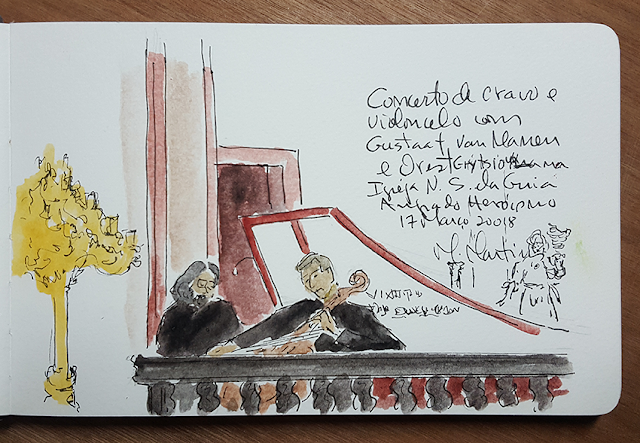 Concerto de cravo e
violoncelo com
Gustaaf van Manen
e Orest Grytsiouk na
Igreja N. S. da Guia
Angra do Heroísmo
17 Março 2008
M. Martins